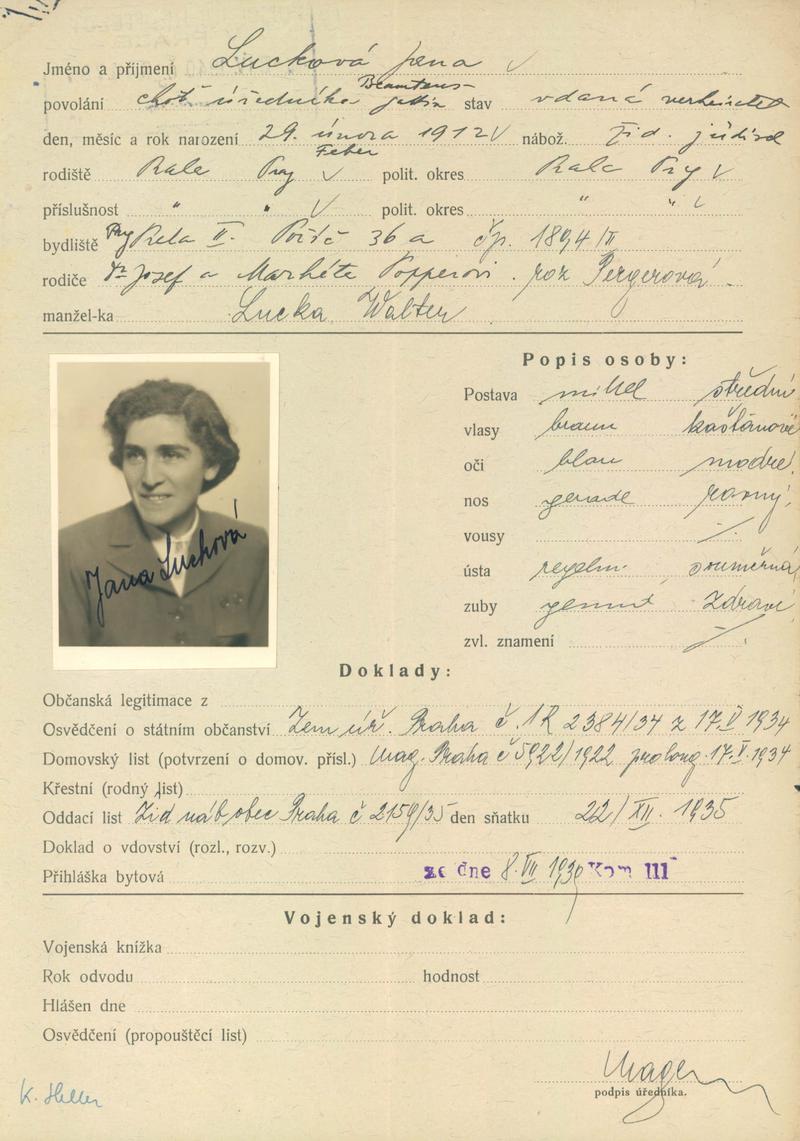 Jméno a příjmení Lucková Jana
Beamtens-
povolání choť úředníka gattin stav vdaná verheiratet
den, měsíc a rok narození 29. února 1912 nábož. žid. jüdisch
Feber
rodiště Praha Prag polit. okres Praha Prag
příslušnost " " polit. okres " "
bydliště Prag Praha II. Poříč 36 a čp. 1894/II
rodiče Dr Josef a Markéta Popperovi. roz Pergerová
manžel-ka Lucka Walter
Popis osoby:
Postava mittel střední
vlasy braun kaštanové
oči blau modré
nos gerade rovný
vousy
ústa regelm. souměrná
zuby gesund zdravé
zvl. znamení
Jana Lucková
Doklady:
Občanská legitimace z
Osvědčení o státním občanství Zem. úř. Praha č. 1R 2384/34 z 17.V 1934
Domovský list (potvrzení o domov. přísl.) Mag. Praha č 5922/1922 prolong. 17.V.1934
Křestní (rodný list)
Oddací list Žid náb obec Praha č 2159/35 den sňatku 22/XII. 1935
Doklad o vdovství (rozl., rozv.)
Přihláška bytová ze dne 8.VII 1939 Kom III
Vojenský doklad:
Vojenská knížka
Rok odvodu hodnost
Hlášen dne
Osvědčení (propouštěcí list)
podpis úředníka.
K. Heller